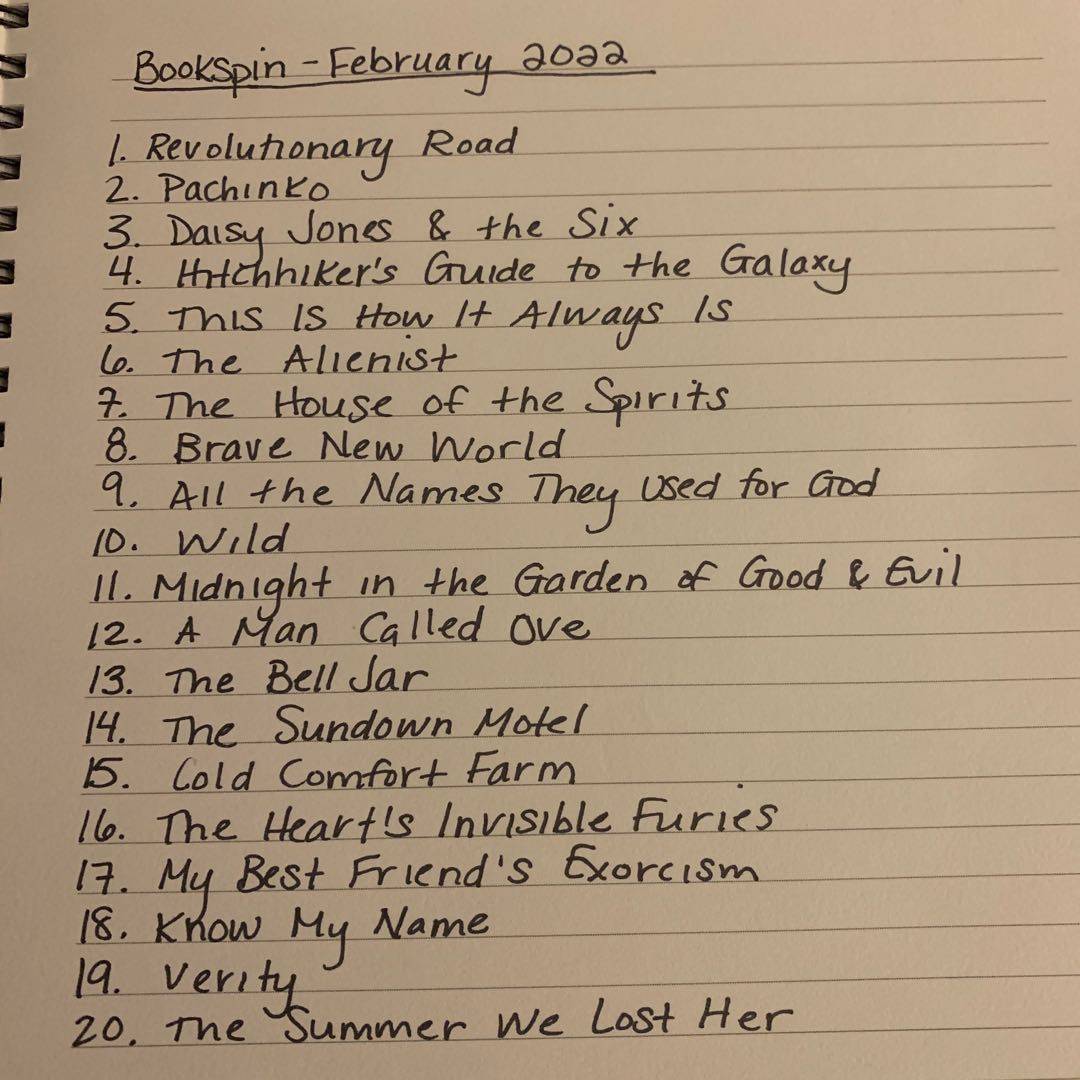 Bookspin - February 2022
1. Revolutionary Road
2. Pachinko
3. Daisy Jones & the Six
4. Hitchhiker's Guide to the Galaxy
5. This Is How It Always Is
6. The Alienist
7. The House of the Spirits
8. Brave New World
9. All the Names They Used for God
10. Wild
11. Midnight in the Garden of Good & Evil
12. A Man Called Ove
13. The Bell Jar
14. The Sundown Motel
15. Cold Comfort Farm
16. The Heart's Invisible Furies
17. My Best Friend's Exorcism
18. Know My Name
19. Verity
20. The Summer We Lost Her